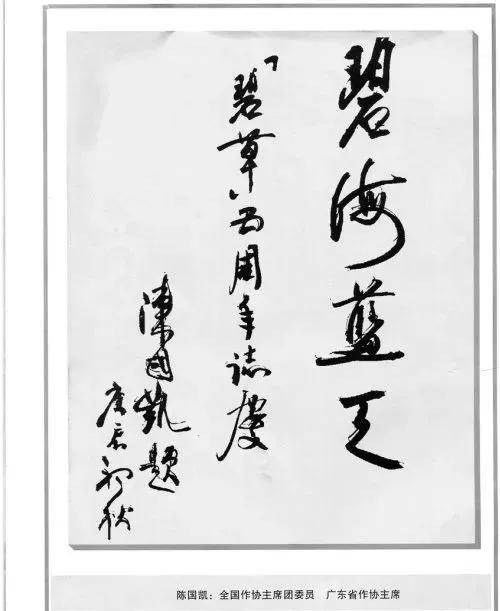 碧海藍天
「碧草」周年誌慶
陳国凱題
庚辰初秋
陈国凯：全国作协主席团委员　广东省作协主席